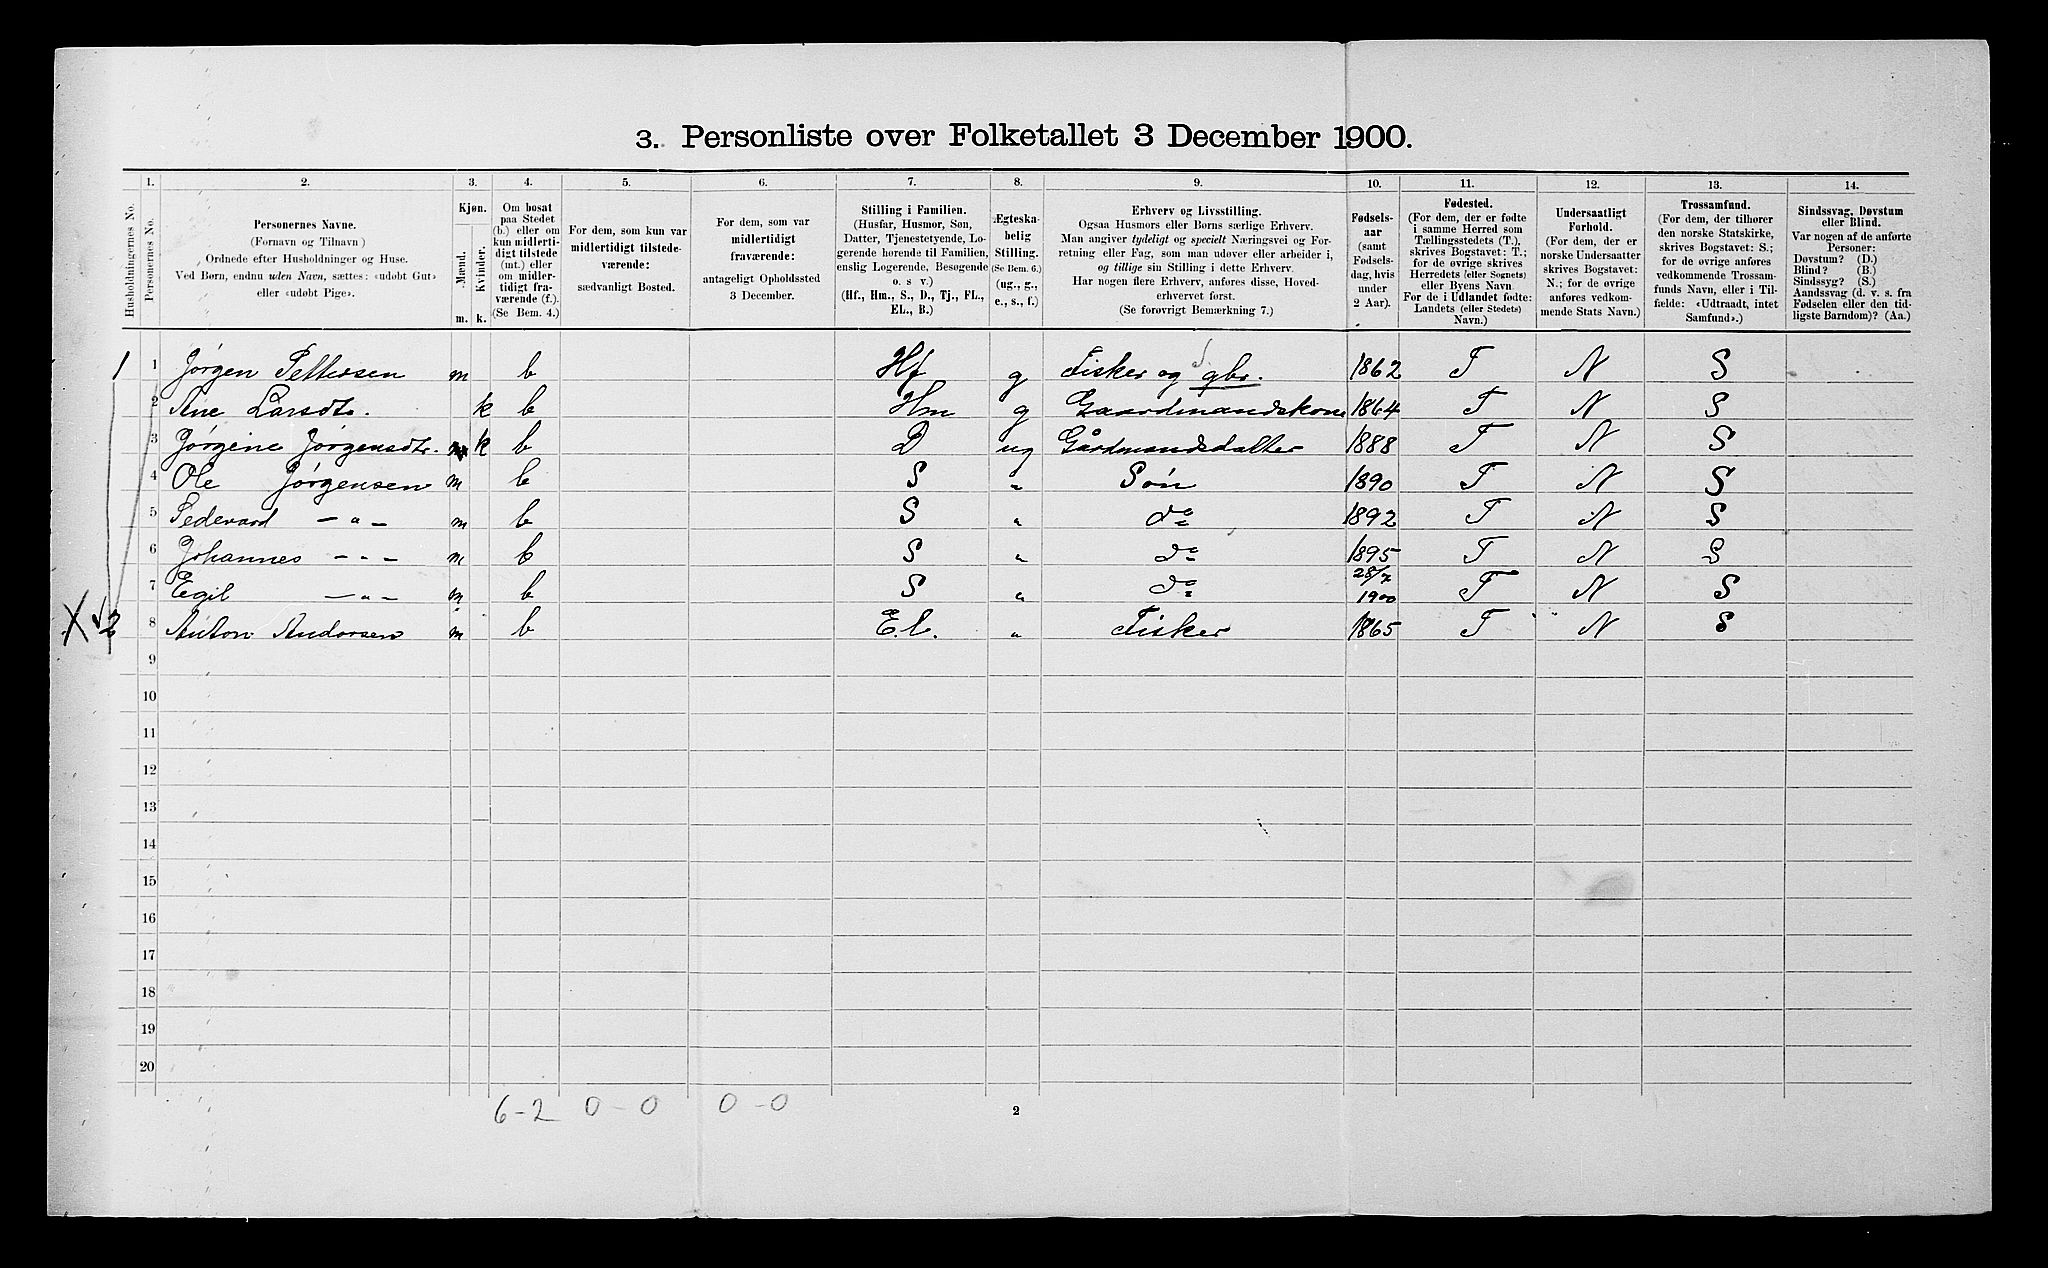 3. Personliste over Folketallet 3 December 1900.
1. 2. 3. 4. 5. 6. 7. 8. 9. 10. 11. 12. 13. 14.
Husholdningernes No.
Personernes No.
Personernes Navne.
(Fornavn og Tilnavn)
Ordnede efter Husholdninger og Huse.
Ved Børn, endnu uden Navn, sættes: «udøbt Gut»
eller «udøbt Pige».
Kjøn.
Mænd.
Kvinder.
m. k.
Om bosat
paa Stedet
(b.) eller om
kun midlerti-
digt tilstede
(mt.) eller
om midler-
tidigt fra-
værende (f.).
(Se Bem. 4.)
For dem, som kun var
midlertidigt tilstede-
værende:
sædvanligt Bosted.
For dem, som var
midlertidigt
fraværende:
antageligt Opholdssted
3 December.
Stilling i Familien.
(Husfar, Husmor, Søn,
Datter, Tjenestetyende, Lo-
gerende hørende til Familien,
enslig Logerende, Besøgende
o. s v.)
(Hf., Hm., S., D., Tj., FL.,
EL., B.)
Ægteska-
belig
Stilling.
(Se Bem. 6.)
(ug., g.,
e., s., f.)
Erhverv og Livsstilling.
Ogsaa Husmors eller Børns særlige Erhverv.
Man angiver tydeligt og specielt Næringsvei og For-
retning eller Fag, som man udøver eller arbeider i,
og tillige sin Stilling i dette Erhverv.
Har nogen flere Erhverv, anføres disse, Hoved-
erhvervet først.
(Se forøvrigt Bemærkning 7.)
Fødsels-
aar
(samt
Fødsels-
dag, hvis
under
2 Aar).
Fødested.
(For dem, der er fødte
i samme Herred som
Tællingsstedets (T.),
skrives Bogstavet: T.;
for de øvrige skrives
Herredets (eller Sognets)
eller Byens Navn.
For de i Udlandet fødte:
Landets (eller Stedets)
Navn.)
Undersaatligt
Forhold.
(For dem, der er
norske Undersaatter
skrives Bogstavet:
N.; for de øvrige
anføres vedkom-
mende Stats Navn.)
Trossamfund.
(For dem, der tilhører
den norske Statskirke,
skrives Bogstavet: S.;
for de øvrige anføres
vedkommende Trossam-
funds Navn, eller i Til-
fælde: «Udtraadt, intet
Samfund».)
Sindssvag, Døvstum
eller Blind.
Var nogen af de anførte
Personer:
Døvstum? (D.)
Blind? (B.)
Sindssyg? (S.)
Aandssvag (d. v. s. fra
Fødselen eller den tid-
ligste Barndom)? (Aa.)
1 1 Jørgen Pettersen m b Hf g Fisker og gbr. 1862 T N S
2 Ane Larsdtr. k b Hm g Gaardmandskone 1864 T N S
3 Jørgine Jørgensdtr. k b D ug Gårdmandsdatter 1888 T N S
4 Ole Jørgensen m b S " Søn 1890 T N S
5 Pedevard — " — m b S " do 1892 T N S
6 Johannes — " — m b S " do 1895 T N S
7 Egil — " — m b S " do 28/7 1900 T N S
X 2 8 Anton Andorsen m b E.l. " Fisker 1865 T N S
9
10
11
12
13
14
15
16
17
18
19
20
6-2 0-0 0-0
2